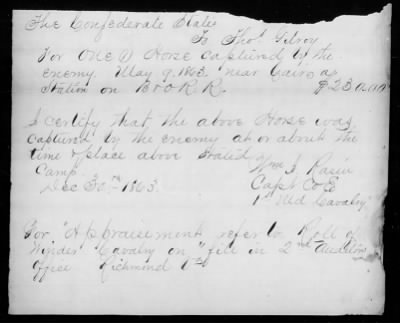 The Confederate States
To Thos. Gilroy
For One (1) Horse captured by the
enemy May 9, 1863. near Cairo as
Station on B & O R. R. $230.00
I certify that the above Horse was
captured by the enemy at or about the
time & place above stated
Camp Wm I. Rasin
Dec 30th 1863. Capt Co E
1st Md Cavalry
For "Appraisement" refer to Roll of
Winder Cavalry on "file in 2nd Auditors
office Richmond Va